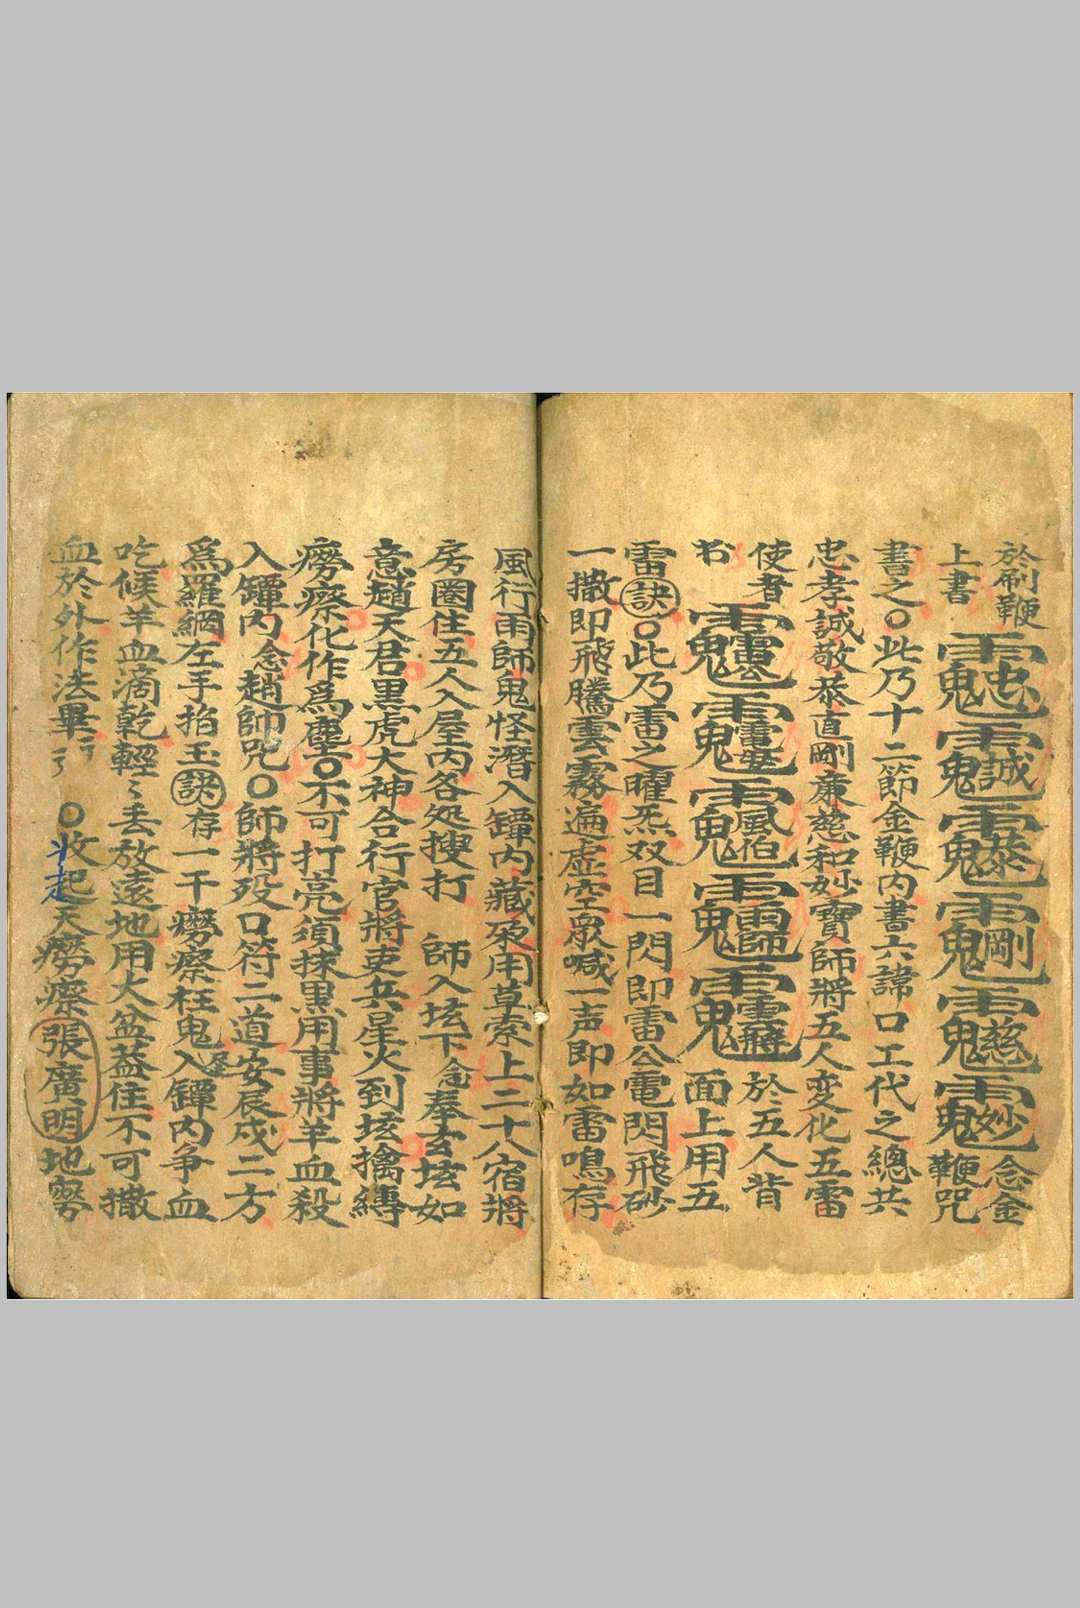 於刷鞭
上書 䨻忠 誠 恭 剛 慈 妙 念金鞭咒
書之○此乃十二節金鞭內書六諱口工代之總共
忠孝誠敬恭直剛廉慈和妙寶師將五人变化五雷
使者 雷公 電母 風伯 雨師 於五人背
面上用五
雷訣○此乃雷之曜炁双目一閃即雷公電閃飛砂
一撒即飛騰雲霧遍虛空衆喊一声即如雷鳴存
風行雨師鬼怪潛入罈內藏染用草索上二十八宿將
房圈住五人入屋內各処搜打 師入垓下念奉玄垓如
意趙天君黑虎大神合行官將吏兵星火到垓擒縛
癆瘵化作爲塵○不可打亮須抹黑用事將羊血殺
入罈內念趙帥咒○師將殁口符二道安辰戍二方
爲羅網左手掐玉訣存一干癆瘵枉鬼入罈內争血
吃候羊血滴乾輕々丢放遠地用火盆蓋住不可撒
血於外作法畢 ○收起天癆瘵張廣明地癆